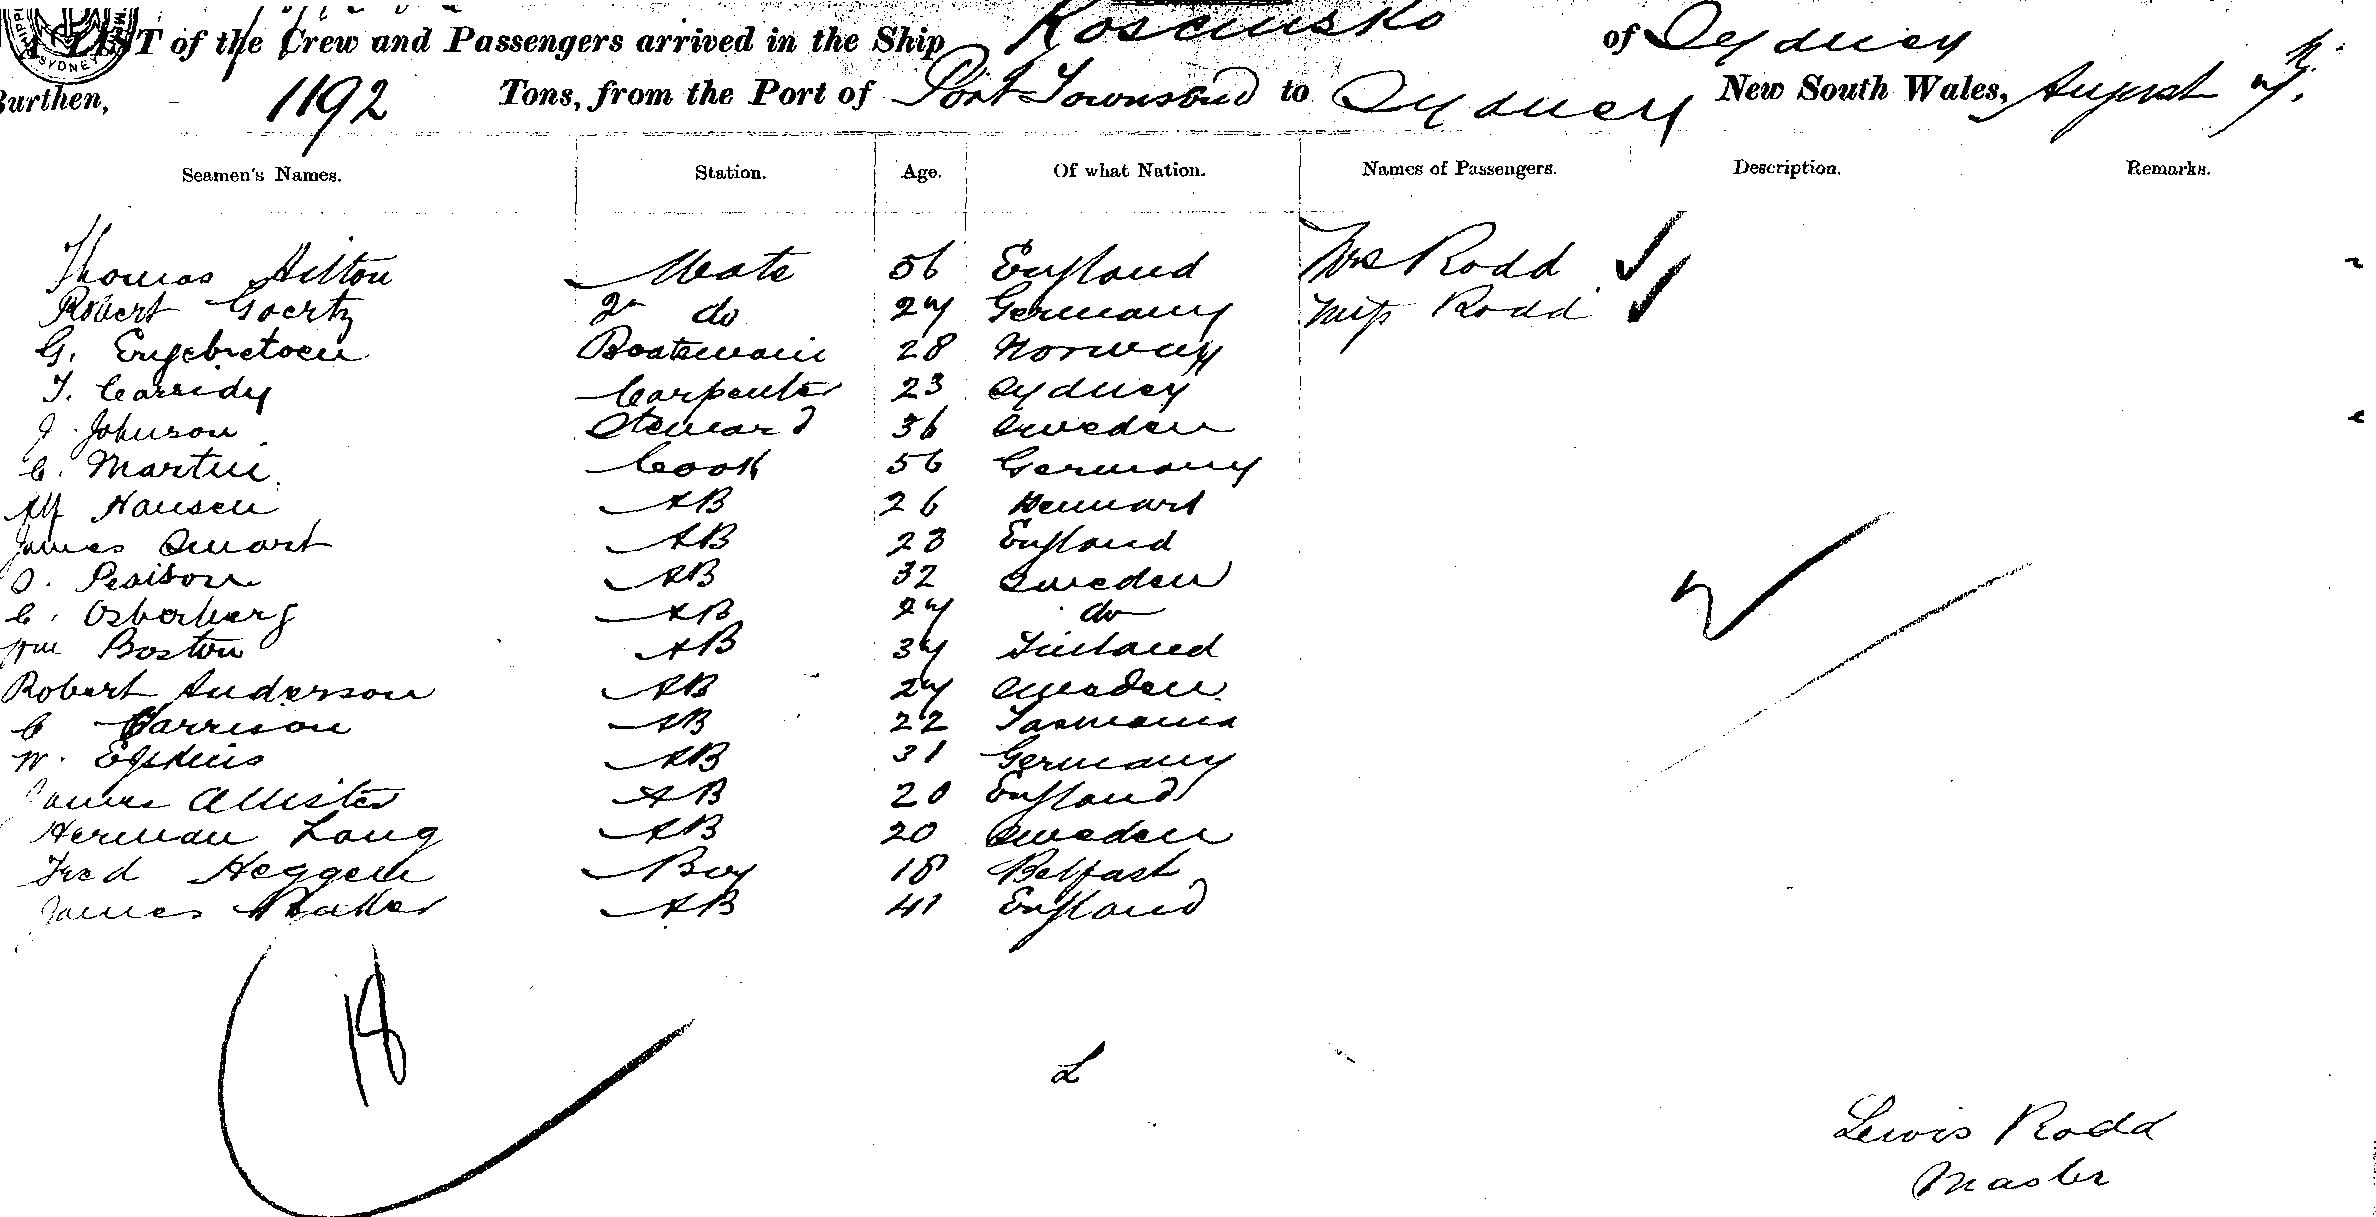 A LIST of the Crew and Passengers arrived in the Ship Kosciusko of Sydney
Burthen, 1192 Tons, from the Port of Port Townsend to Sydney New South Wales, August
Seamen's Names. Station. Age. Of what Nation. Names of Passengers. Description. Remarks.
Thomas Hilton Mate 56 England Mrs Rodd
Robert Goertz 2n do 27 Germany Miss Rodd
G. Engebretsen Boatswain 28 Norway
T. Cassidy Carpenter 23 Sydney
J. Johnson Steward 36 Sweden
C. Martin Cook 56 Germany
Alf Hansen AB 26 Denmark
James Smart AB 23 England
AB 32 Sweden
C. AB 27 do
Wm Boston AB 37 Finland
Robert Anderson AB 27 Sweden
C Garrison AB 22 Tasmania
W. AB 31 Germany
James Allister AB 20 England
Herman Lang AB 20 Sweden
Fred Heggem Boy 18 Belfast
James AB 41 England
18
Lewis Rodd
Master